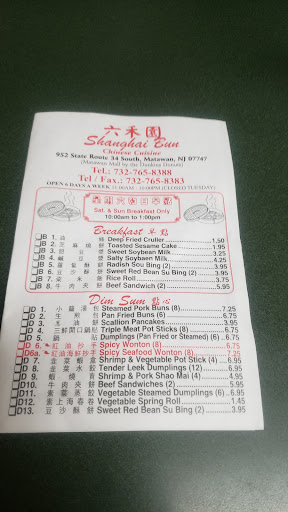 六禾園
Shanghai Bun
Chinese Cuisine
952 State Route 34 South, Matawan, NJ 07747
(Matawan Mall by the Dunkin Donuts)
Tel.: 732-765-8388
Tel / Fax.: 732-765-8383
OPEN 6 DAYS A WEEK 11:00AM - 10:00PM (CLOSED TUESDAY)
Sat. & Sun Breakfast Only
10:00am to 1:00pm
Breakfast 早點
B 1. 油條 Deep Fried Cruller 1.50
B 2. 芝麻燒餅 Toasted Sesame Cake 1.95
B 3. 甜豆漿 Sweet Soybean Milk 3.25
B 4. 鹹豆漿 Salty Soybean Milk 4.25
B 5. 蘿蔔酥餅 Radish Sou Bing (2) 3.95
B 6. 豆沙酥餅 Sweet Red Bean Su Bing (2) 3.95
B 7. 粢米飯 Rice Roll 3.95
B 8. 牛肉夾餅 Beef Sandwich (2) 5.95
Dim Sum 點心
D 1. 小籠湯包 Steamed Pork Buns (8) 7.25
D 2. 生煎包 Pan Fried Buns (6) 6.75
D 3. 葱油餅 Scallion Pancakes 3.95
D 4. 三鮮窩口鍋貼 Triple Meat Pot Sticks (8)
D 5. 鍋貼 Dumplings (Pan Fried or Steamed) (6) 6.25
D 6. 紅油抄手 Spicy Wonton (8) 6.75
D6a. 紅油海鮮抄手 Spicy Seafood Wonton (8) 7.25
D 7. 韮菜蝦盒 Shrimp & Vegetable Pot Stick (4) 5.95
D 8. 韮菜水餃 Tender Leek Dumplings (12) 7.95
D 9. 蝦燒賣 Shrimp & Pork Shao Mai (4) 4.95
D10. 牛肉夾餅 Beef Sandwiches (2) 5.95
D11. 素菌蒸餃 Vegetable Steamed Dumplings (6) 6.95
D12. 素上海春卷 Vegetable Spring Roll 1.45
D13. 豆沙酥餅 Sweet Red Bean Su Bing (2) 3.95